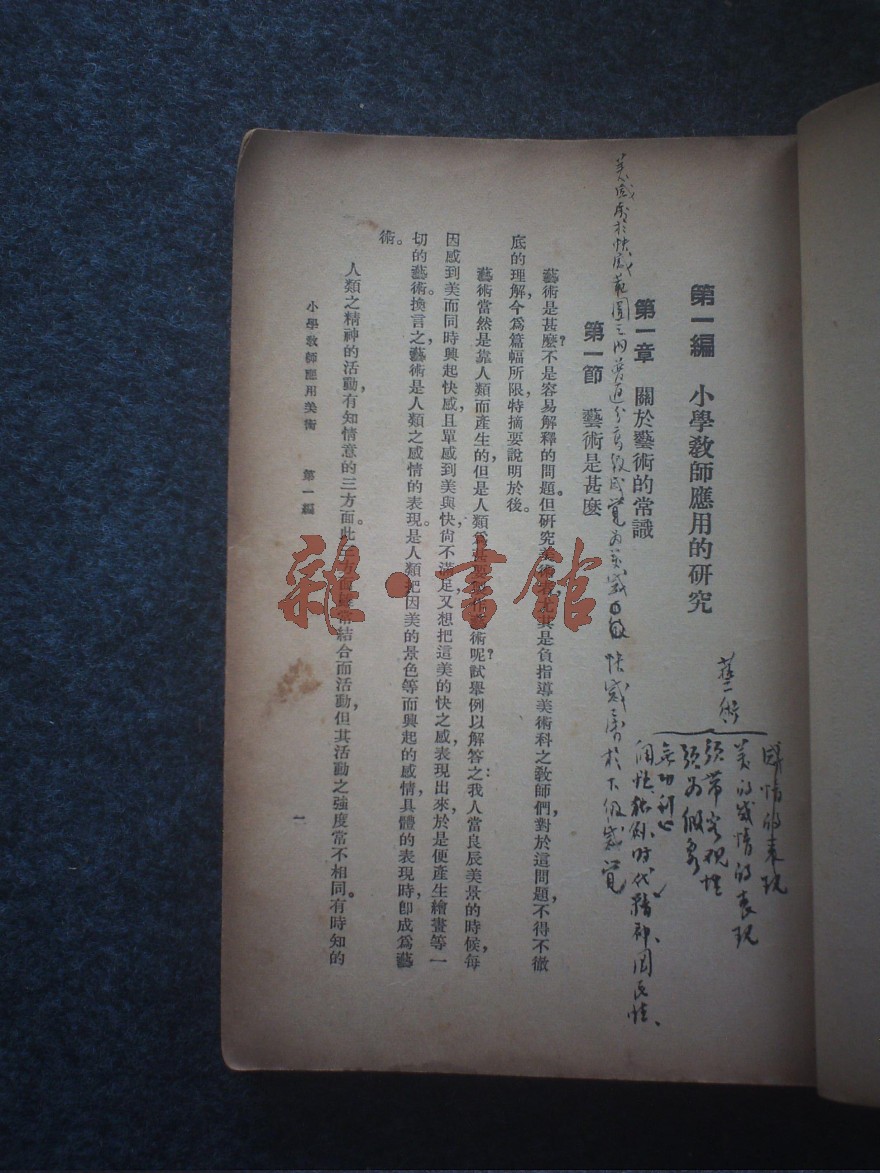 第一編　小學教師應用的研究
第一章　關於藝術的常識
第一節　藝術是甚麼
藝術是甚麼？不是容易解釋的問題。但研究美術，尤其是負指導美術科之教師們，對於這問題，不得不徹
底的理解，今爲篇幅所限，特摘要說明於後。
藝術當然是靠人類而產生的，但是人類爲甚要製作藝術呢？試舉例以解答之：我人當良辰美景的時候，每
因感到美而同時興起快感，且單感到美與快，尙不滿足，又想把這美的快之感，表現出來，於是便產生繪畫等一
切的藝術。換言之，藝術是人類之感情的表現。是人類把因美的景色等而興起的感情，具體的表現時，卽成爲藝
術。
人類之精神的活動，有知情意的三方面。此三方面結合而活動，但其活動之強度常不相同。有時知的
小學教師應用美術　第一編
一
藝術
感情的表現
美的感情的表現
須帶客視性
須為假象
無功利心
個性、時代精神、國民性、
美感屬於快感範圍之内普通分高級感覺為美感
快感屬於下級感覺
雜·書館